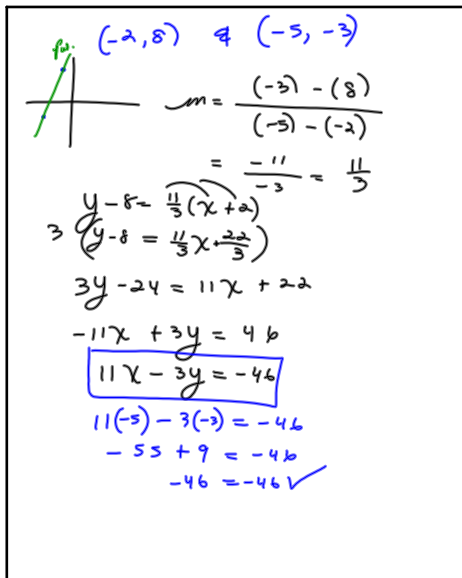 (-2, 8) & (-5, -3)
m = \frac{(-3) - (8)}{(-5) - (-2)}
= \frac{-11}{-3} = \frac{11}{3}
y - 8 = \frac{11}{3}(x + 2)
3 (y - 8 = \frac{11}{3}x + \frac{22}{3})
3y - 24 = 11x + 22
-11x + 3y = 46
11x - 3y = -46
11(-5) - 3(-3) = -46
-55 + 9 = -46
-46 = -46 ✓